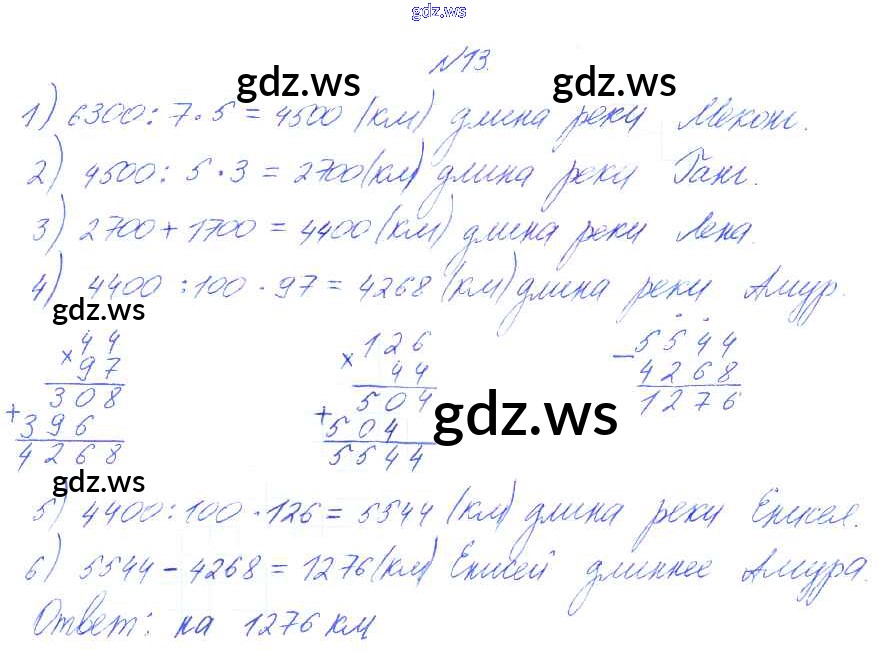 gdz.ws
№13.
gdz.ws gdz.ws
1) 6300 : 7 · 5 = 4500 (км) длина реки Меконг.
2) 4500 : 5 · 3 = 2700 (км) длина реки Ганг.
3) 2700 + 1700 = 4400 (км) длина реки Лена.
4) 4400 : 100 · 97 = 4268 (км) длина реки Амур.
gdz.ws
× 44
97
308
+ 396
4268
× 126
44
504
+ 504
5544
− 5544
4268
1276
gdz.ws
gdz.ws
5) 4400 : 100 · 126 = 5544 (км) длина реки Енисея.
6) 5544 − 4268 = 1276 (км) Енисей длиннее Амура.
Ответ: на 1276 км